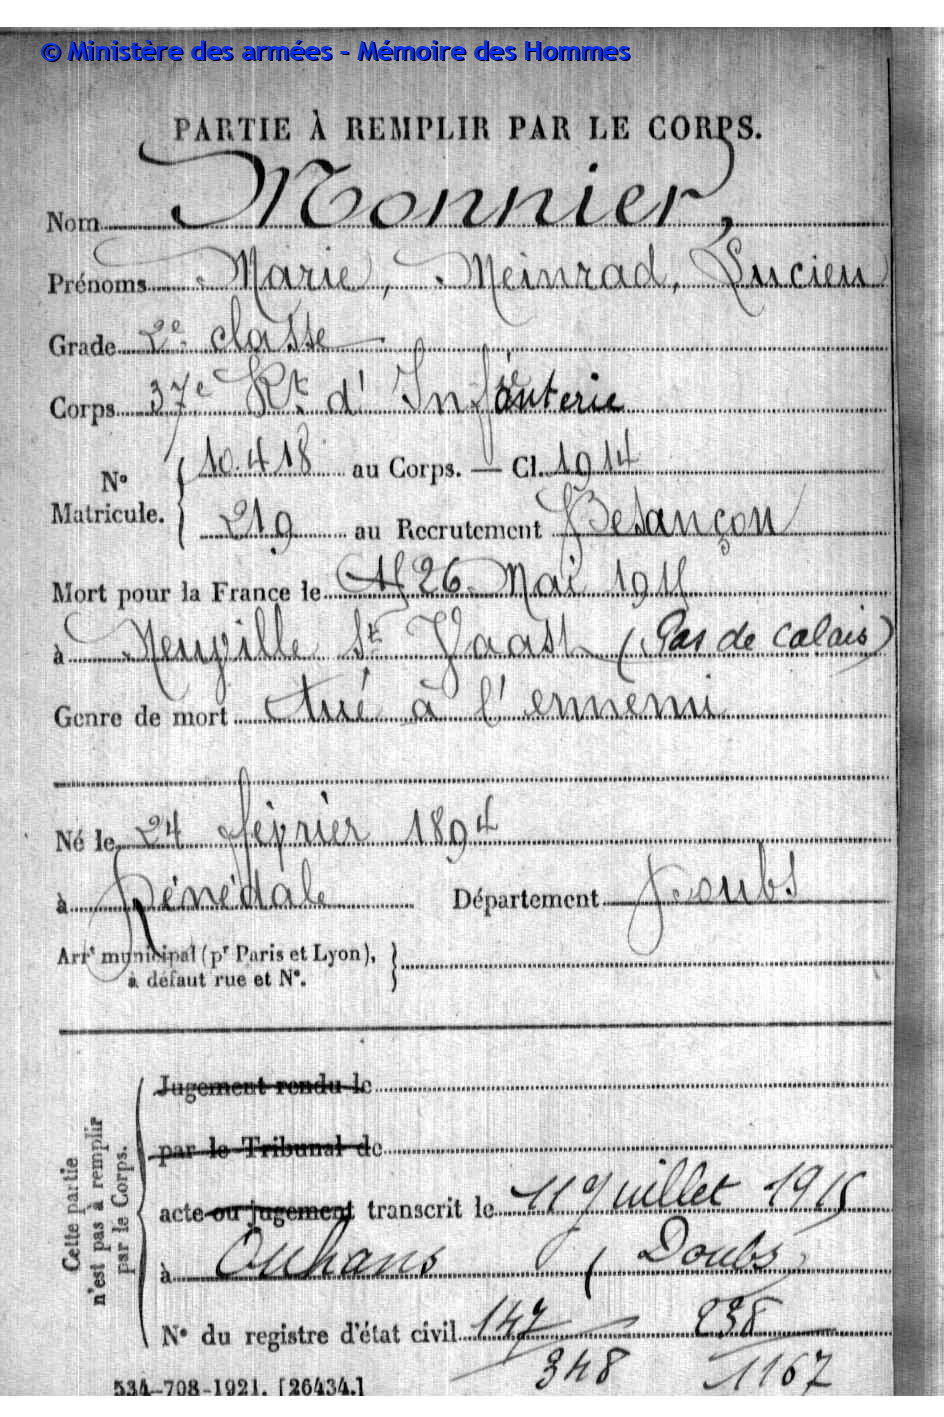 © Ministère des armées - Mémoire des Hommes
PARTIE À REMPLIR PAR LE CORPS.
Nom Monnier,
Prénoms Marie, Meinrad, Lucien
Grade 2e classe
Corps 37e Rt d'Infanterie
No Matricule. { 10.418 au Corps. — Cl. 1914
219 au Recrutement Besançon
Mort pour la France le 26 Mai 1915
à Neuville St Vaast (Pas de Calais)
Genre de mort tué à l'ennemi
Né le 24 février 1894
à Rénédale Département Doubs
Arrt municipal (pr Paris et Lyon), }
à défaut rue et No.
Cette partie n'est pas à remplir par le Corps.
Jugement rendu le
par le Tribunal de
acte ou jugement transcrit le 11 Juillet 1915
à Ouhans (Doubs)
No du registre d'état civil 147 238
348 1167
534-708-1921. [26434.]